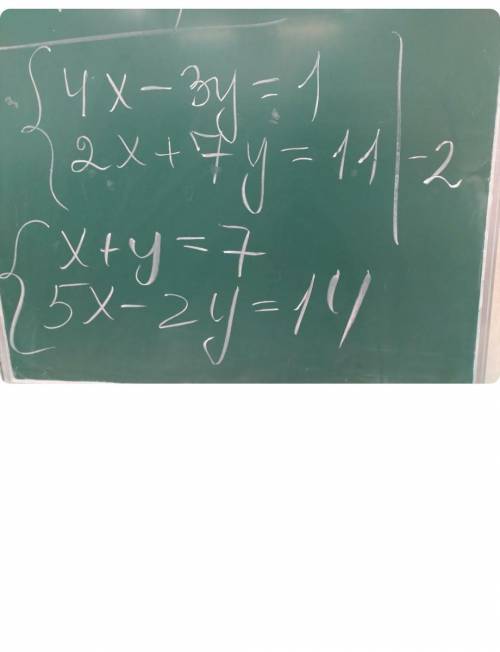 4x - 3y = 1
2x + 7y = 11 | -2
x + y = 7
5x - 2y = 14